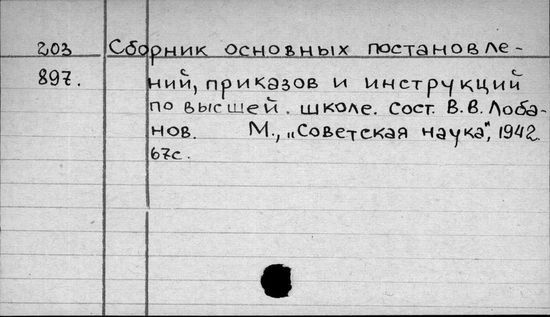 203 Сборник основных постановле-
897. ний, приказов и инструкций
по высшей. школе. Сост. В.В. Лоба-
нов. М., „Советская наука", 1942.
67с.